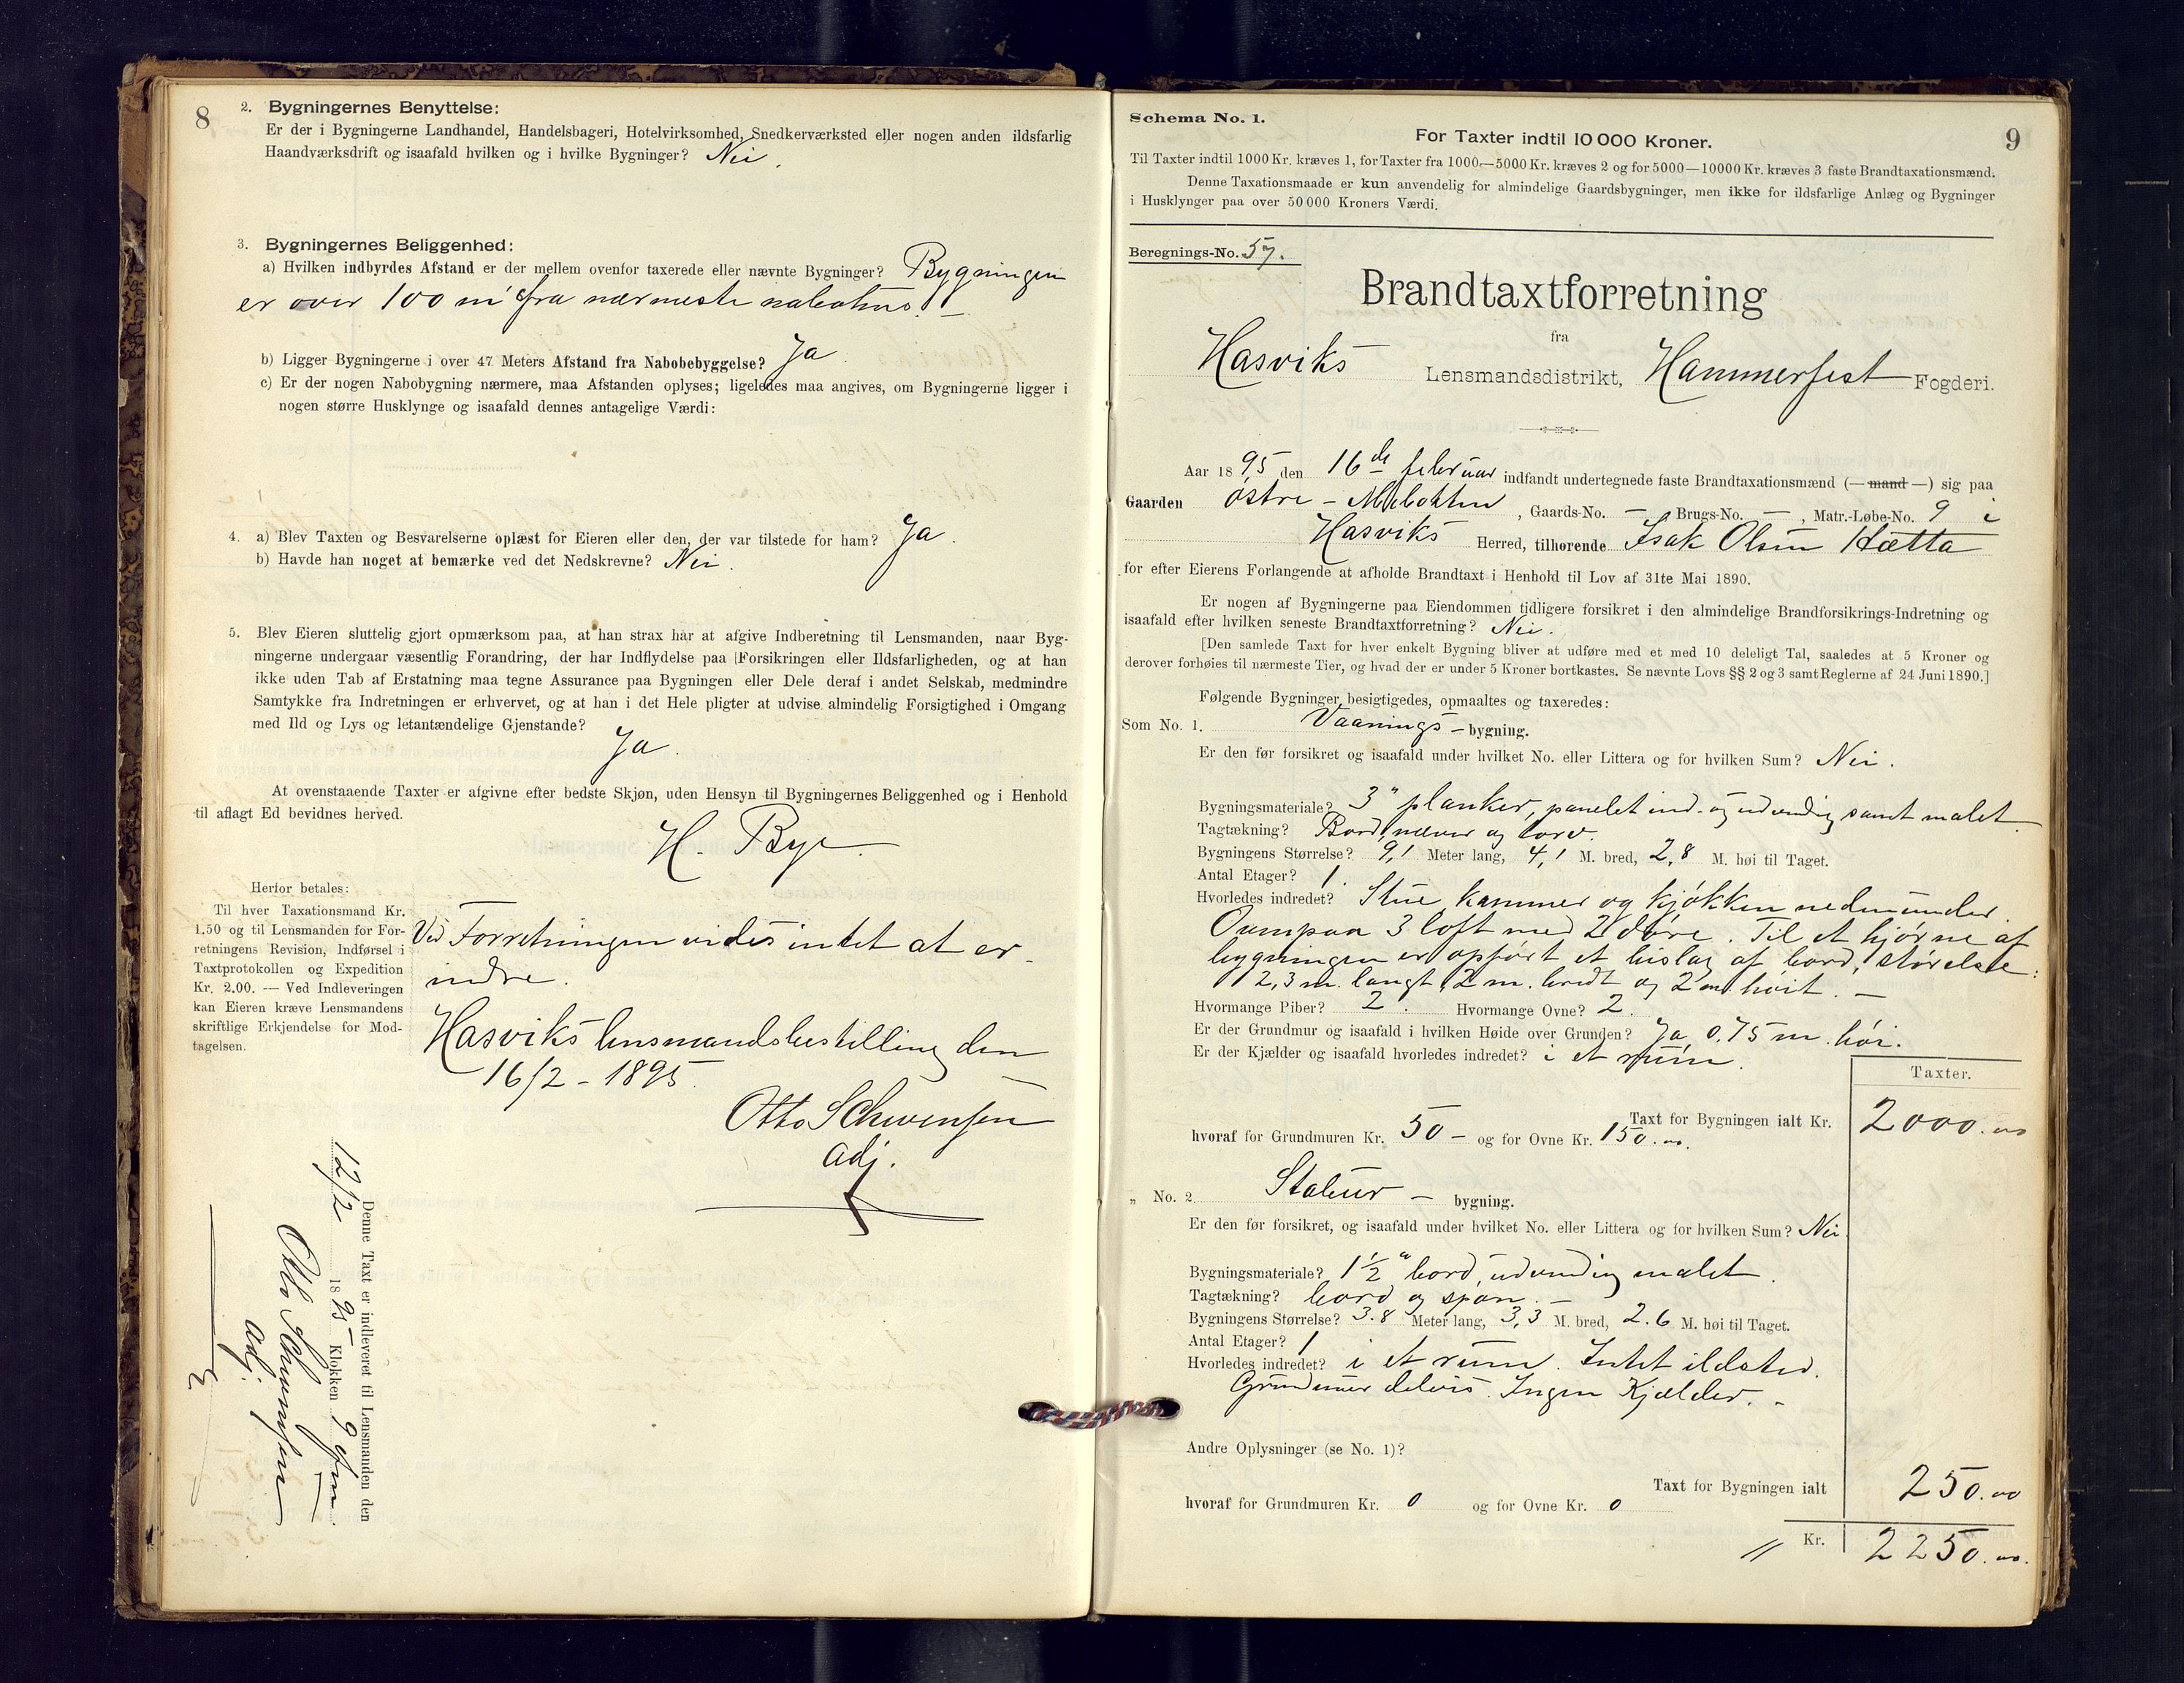 8
2. Bygningernes Benyttelse:
Er der i Bygningerne Landhandel, Handelsbageri, Hotelvirksomhed, Snedkerværksted eller nogen anden ildsfarlig
Haandværksdrift og isaafald hvilken og i hvilke Bygninger? Nei.
3. Bygningernes Beliggenhed:
a) Hvilken indbyrdes Afstand er der mellem ovenfor taxerede eller nævnte Bygninger? Bygningen
er over 100 m fra nærmeste nabohus. –
b) Ligger Bygningerne i over 47 Meters Afstand fra Nabobebyggelse? Ja.
c) Er der nogen Nabobygning nærmere, maa Afstanden oplyses; ligeledes maa angives, om Bygningerne ligger i
nogen større Husklynge og isaafald dennes antagelige Værdi:
4. a) Blev Taxten og Besvarelserne oplæst for Eieren eller den, der var tilstede for ham? Ja.
b) Havde han noget at bemærke ved det Nedskrevne? Nei.
5. Blev Eieren sluttelig gjort opmærksom paa, at han strax har at afgive Indberetning til Lensmanden, naar Byg-
ningerne undergaar væsentlig Forandring, der har Indflydelse paa Forsikringen eller Ildsfarligheden, og at han
ikke uden Tab af Erstatning maa tegne Assurance paa Bygningen eller Dele deraf i andet Selskab, medmindre
Samtykke fra Indretningen er erhvervet, og at han i det Hele pligter at udvise almindelig Forsigtighed i Omgang
med Ild og Lys og letantændelige Gjenstande?
Ja.
At ovenstaaende Taxter er afgivne efter bedste Skjøn, uden Hensyn til Bygningernes Beliggenhed og i Henhold
til aflagt Ed bevidnes herved.
H. Bye
Herfor betales:
Til hver Taxationsmand Kr.
1.50 og til Lensmanden for For-
retningens Revision, Indførsel i
Taxtprotokollen og Expedition
Kr. 2.00. — Ved Indleveringen
kan Eieren kræve Lensmandens
skriftlige Erkjendelse for Mod-
tagelsen.
Ved Forretningen vides intet at er-
indre.
Hasviks lensmandsbestilling den
16/2 - 1895.
Otto Schwensen
adj.
Denne Taxt er indleveret til Lensmanden den
12/2 1895 Klokken 9 fm.
Otto Schwensen
adj.
Schema No. 1.
9
For Taxter indtil 10 000 Kroner.
Til Taxter indtil 1000 Kr. kræves 1, for Taxter fra 1000—5000 Kr. kræves 2 og for 5000—10000 Kr. kræves 3 faste Brandtaxationsmænd.
Denne Taxationsmaade er kun anvendelig for almindelige Gaardsbygninger, men ikke for ildsfarlige Anlæg og Bygninger
i Husklynger paa over 50 000 Kroners Værdi.
Beregnings-No. 57.
Brandtaxtforretning
fra
Hasviks Lensmandsdistrikt, Hammerfest Fogderi.
Aar 1895 den 16de februar indfandt undertegnede faste Brandtaxationsmænd (—mand—) sig paa
Gaarden østre - , Gaards-No. — Brugs-No. — , Matr.-Løbe-No. 9 i
Hasviks Herred, tilhørende Isak Olsen Hætta
for efter Eierens Forlangende at afholde Brandtaxt i Henhold til Lov af 31te Mai 1890.
Er nogen af Bygningerne paa Eiendommen tidligere forsikret i den almindelige Brandforsikrings-Indretning og
isaafald efter hvilken seneste Brandtaxtforretning? Nei.
[Den samlede Taxt for hver enkelt Bygning bliver at udføre med et med 10 deleligt Tal, saaledes at 5 Kroner og
derover forhøies til nærmeste Tier, og hvad der er under 5 Kroner bortkastes. Se nævnte Lovs §§ 2 og 3 samt Reglerne af 24 Juni 1890.]
Følgende Bygninger besigtigedes, opmaaltes og taxeredes:
Som No. 1. Vaanings - bygning.
Er den før forsikret og isaafald under hvilket No. eller Littera og for hvilken Sum? Nei.
Bygningsmateriale? 3" planker, panelet ind- og udvendig samt malet.
Tagtækning? Bord, næver og torv.
Bygningens Størrelse? 9,1 Meter lang, 4,1 M. bred, 2,8 M. høi til Taget.
Antal Etager? 1.
Hvorledes indredet? Stue, kammer og kjøkken nedenunder.
Ovenpaa 3 loft med 2 døre. Til et hjørne af
bygningen er opført et bislag af bord, størelse:
2,3 m. langt, 2 m. bredt og 2 m høit. —
Hvormange Piber? 2. Hvormange Ovne? 2.
Er der Grundmur og isaafald i hvilken Høide over Grunden? Ja, 0,75 m. høi.
Er der Kjælder og isaafald hvorledes indredet? i et rum.
Taxter.
Taxt for Bygningen ialt Kr. 2000.00
hvoraf for Grundmuren Kr. 50 — og for Ovne Kr. 150.00.
„ No. 2 Stabur — bygning.
Er den før forsikret, og isaafald under hvilket No. eller Littera og for hvilken Sum? Nei
Bygningsmateriale? 1½" bord, udvendig malet.
Tagtækning? bord og spon. —
Bygningens Størrelse? 3.8 Meter lang, 3,3 M. bred, 2.6 M. høi til Taget.
Antal Etager? 1
Hvorledes indredet? i et rum. Intet ildsted.
Grundmur delvis. Ingen Kjælder. -
Andre Oplysninger (se No. 1)?
Taxt for Bygningen ialt 250.00
hvoraf for Grundmuren Kr. 0 og for Ovne Kr. 0
Kr. 2250.00.